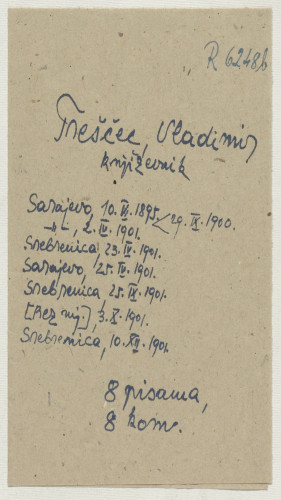 R 6248b
Treščec, Vladimir
književnik
Sarajevo, 10. VI. 1895. / 29. IX. 1900.
-"-, 2. IV. 1901.
Srebrenica, 23. IV. 1901.
Sarajevo, 25. IV. 1901.
Srebrenica, 25. IX. 1901.
[Bez mj.], 3. X. 1901.
Srebrenica, 10. XII. 1901.
8 pisama,
8 kom.